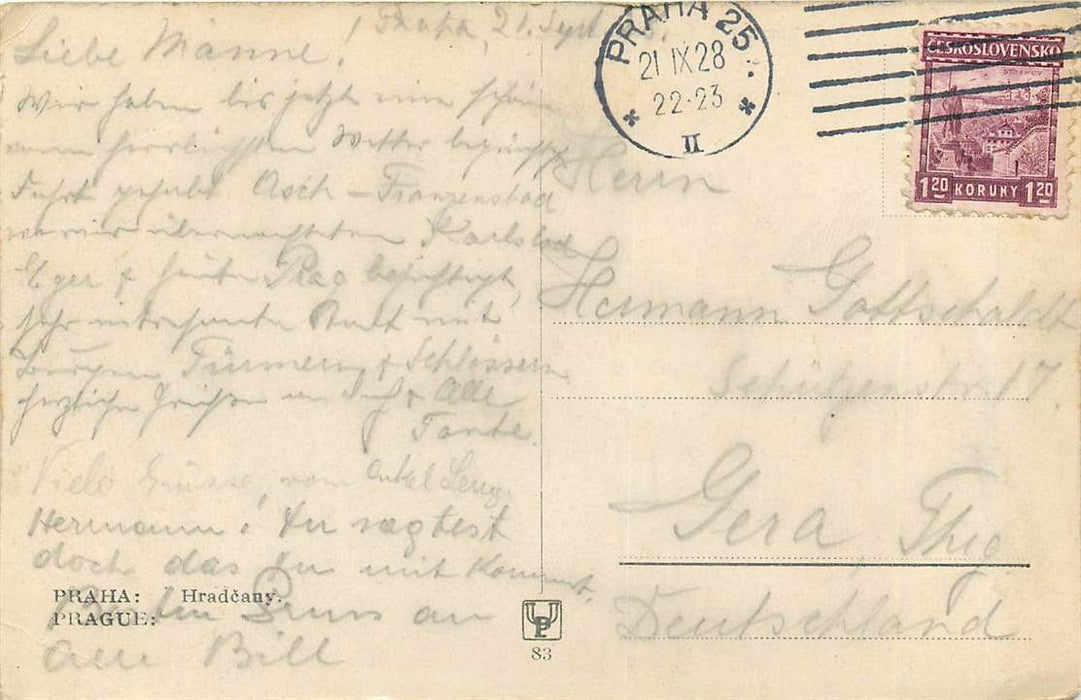 Praha, 21. Sept
Liebe Männe!
Wir haben bis jetzt eine schöne
vom herrlichsten Wetter begünstigte
Fahrt gehabt Asch – Franzensbad
wo wir übernachteten Karlsbad
Eger + heute Prag besichtigt,
sehr interessante Stadt mit
Burgen Türmern + Schlössern
herzliche Grüße an Dich + Alle
Tante.
Viele Grüsse, vom Onkel
Hermann! Du sagtest
doch das Du mit kommst.
Gruss an
Alle Bill
PRAHA: Hradčany.
PRAGUE:
UP
83
PRAHA 25
21 IX 28
22-23
II
ČESKOSLOVENSKO
1 20 KORUNY 1 20
Herrn
Hermann Gottschaldt
Schützenstr. 17.
Gera, Thg
Deutschland